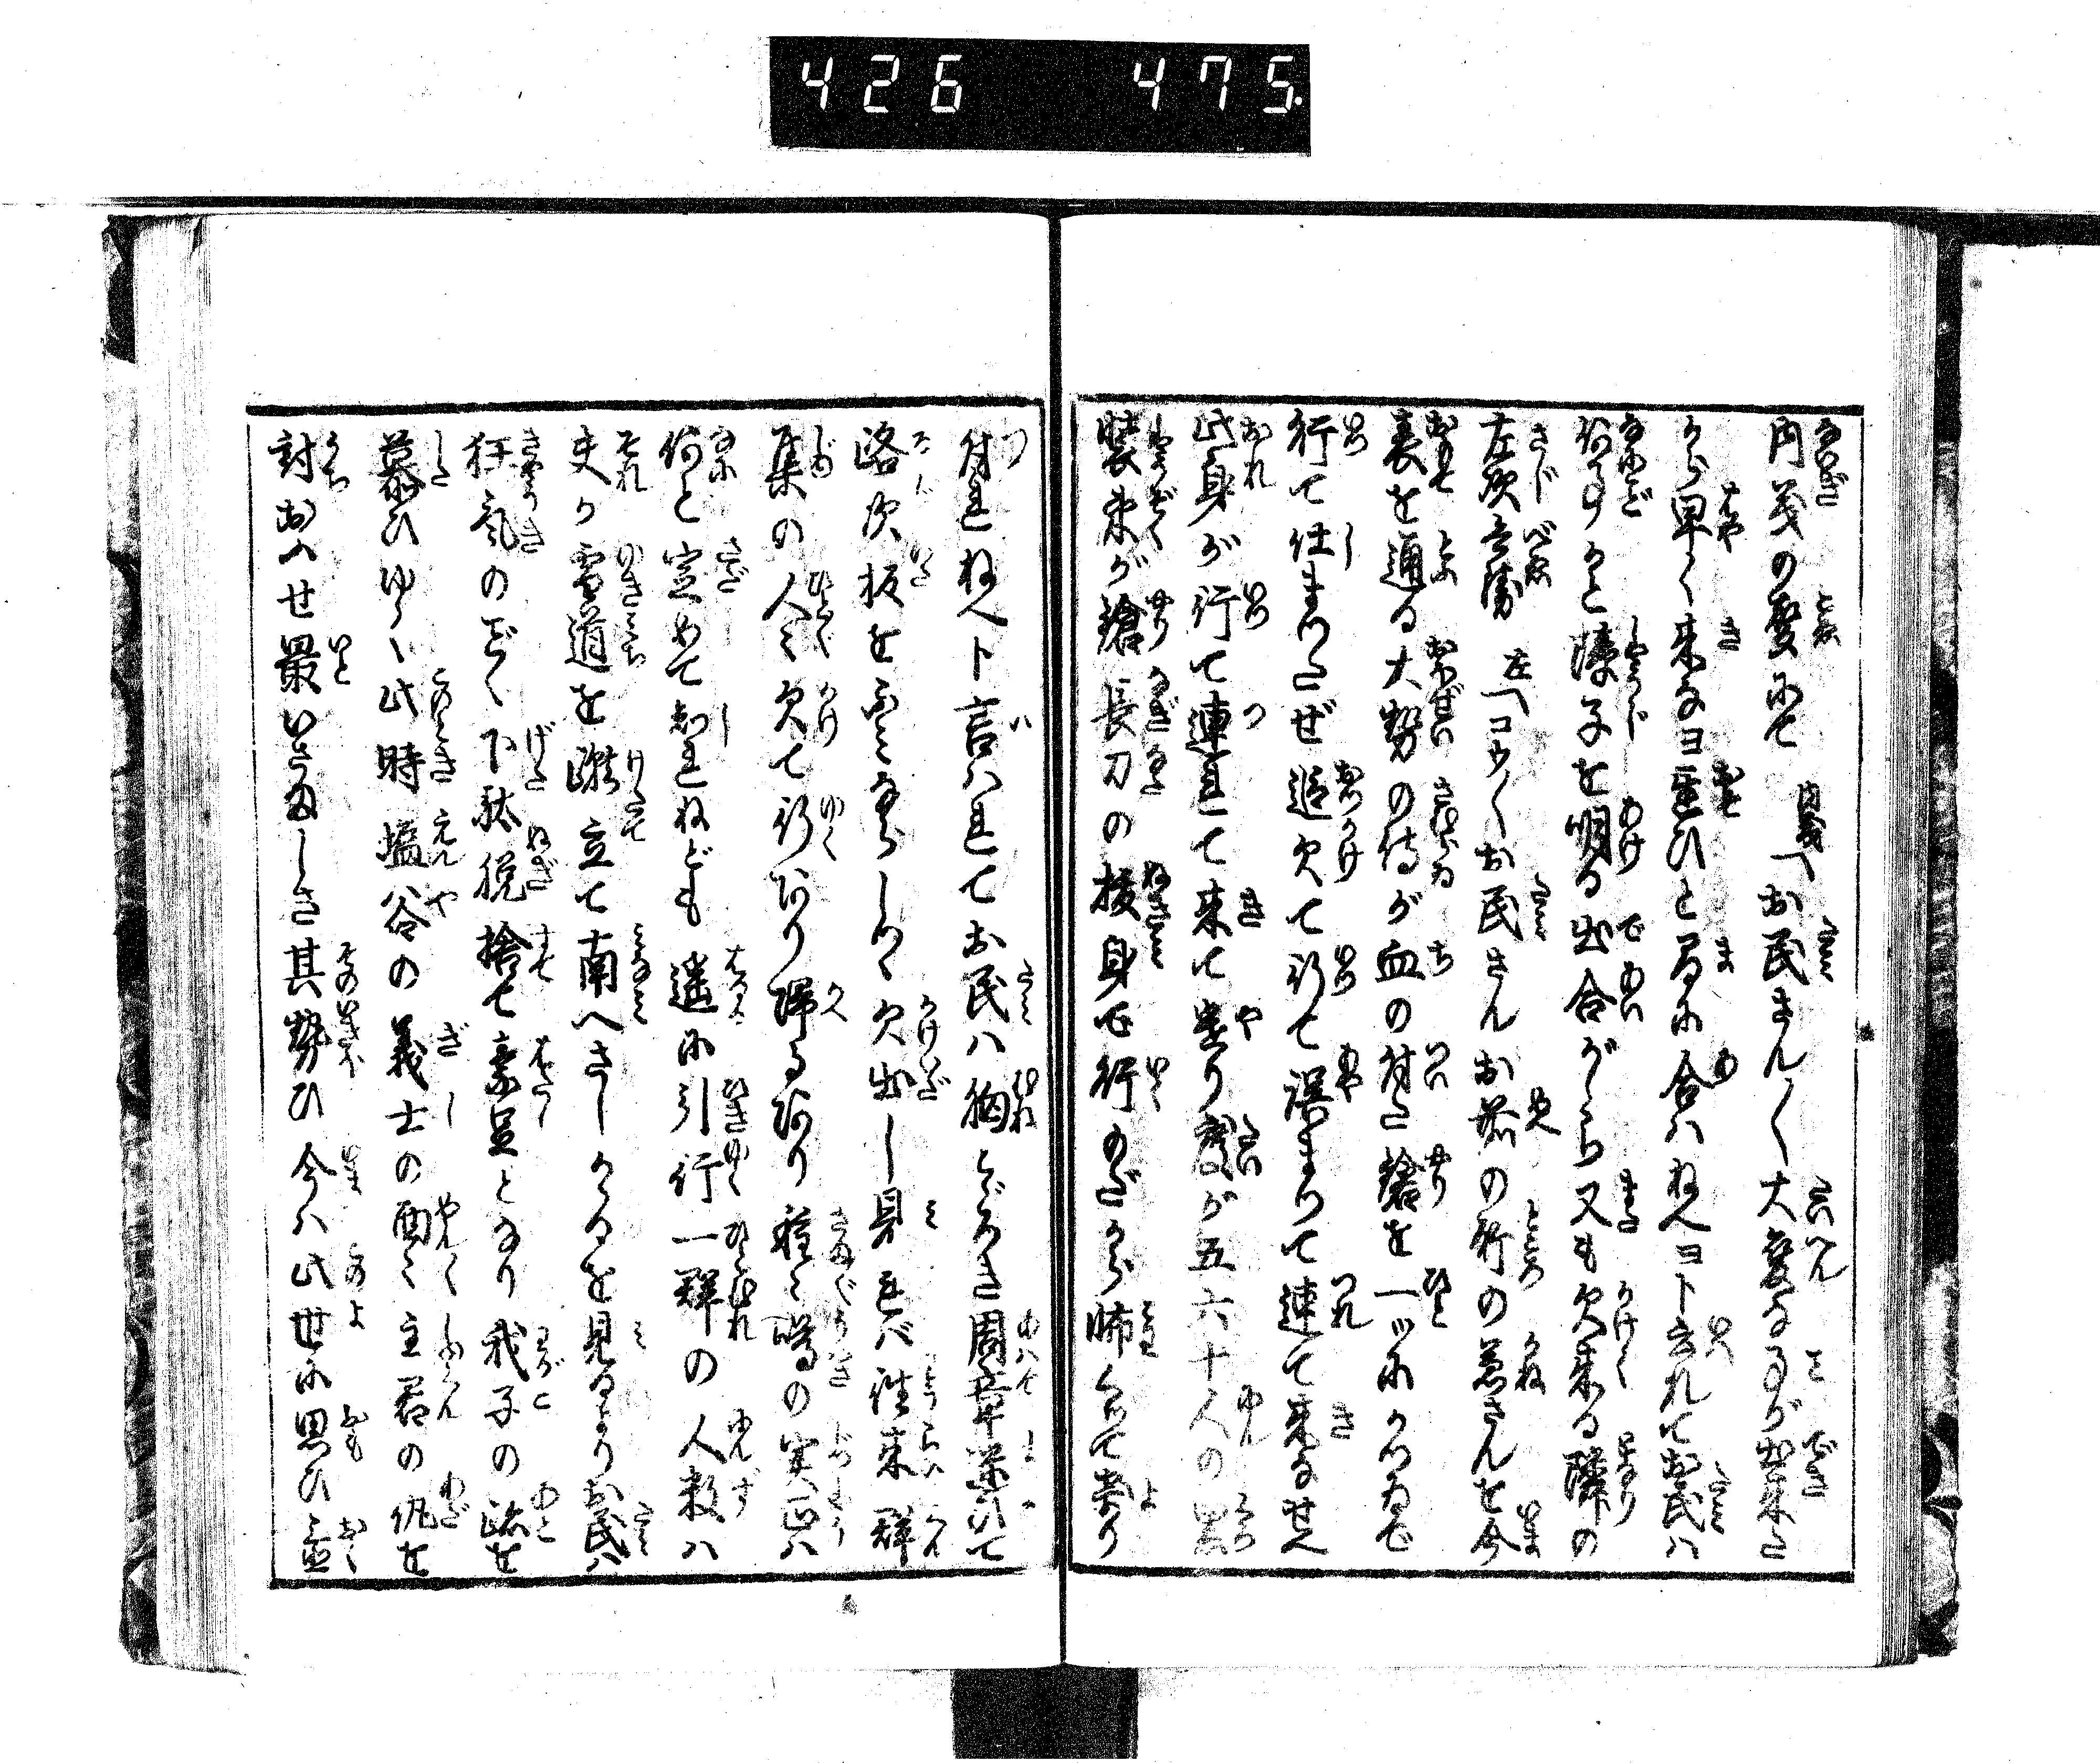 426 475
内義の聲にて 内義〽お民さん〳〵大変な事が出来た
から早く来なヨ遅ひと間に合はねへヨト言れてお民は
何事かと障子を明る出合がしら又も欠来る隣の
左次兵衛 左〽コウ〳〵お民さんお前の所の兼さんを今
表を通る大勢の侍が血の付た鎗を一ッにかつゐで
行て仕まつたぜ追欠て行て謀まつて連て来なせへ
此身が行て連れて来て遣り度が五六十人の黒
装束が鎗長刀の抜身で行のだから怖くつて寄り
付れねへト言はれてお民は胸とゞろき周章迷ひて
路次板をふみならしつゝ欠出し見れば往来群
集の人々欠て行あり帰るあり種々噂の実正は
何と定めてしれねども遥に引行一群の人数は
夫か雪道を蹴立て南へさしかゝるを見るよりお民は
狂気のごとく下駄脱捨て素足となり我子の跡を
慕ひゆく此時塩谷の義士の面々主君の仇を
討おふせ最いさましき其勢ひ今は此世に思ひ置